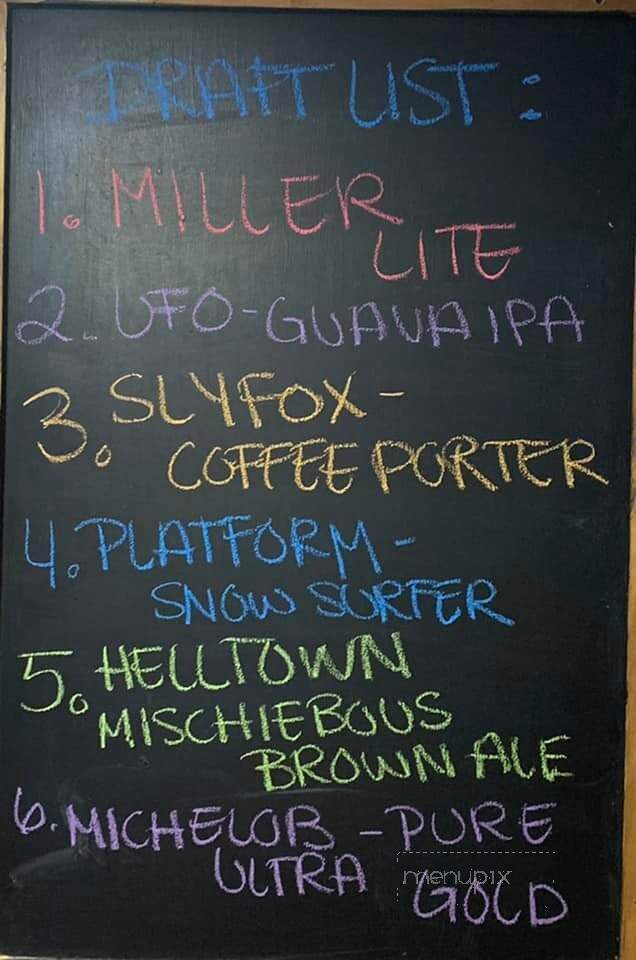 DRAFT LIST:
1. MILLER
LITE
2. UFO-GUAVA IPA
3. SLYFOX -
COFFEE PORTER
4. PLATFORM -
SNOW SURFER
5. HELLTOWN
MISCHIEBOUS
BROWN ALE
6. MICHELOB - PURE
ULTRA GOLD
menupix